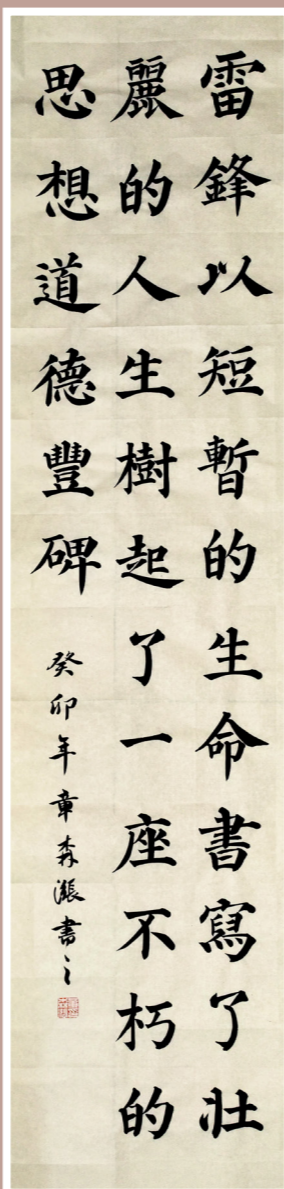 雷鋒以短暫的生命書寫了壯
麗的人生樹起了一座不朽的
思想道德豐碑
癸卯年章森漲書之